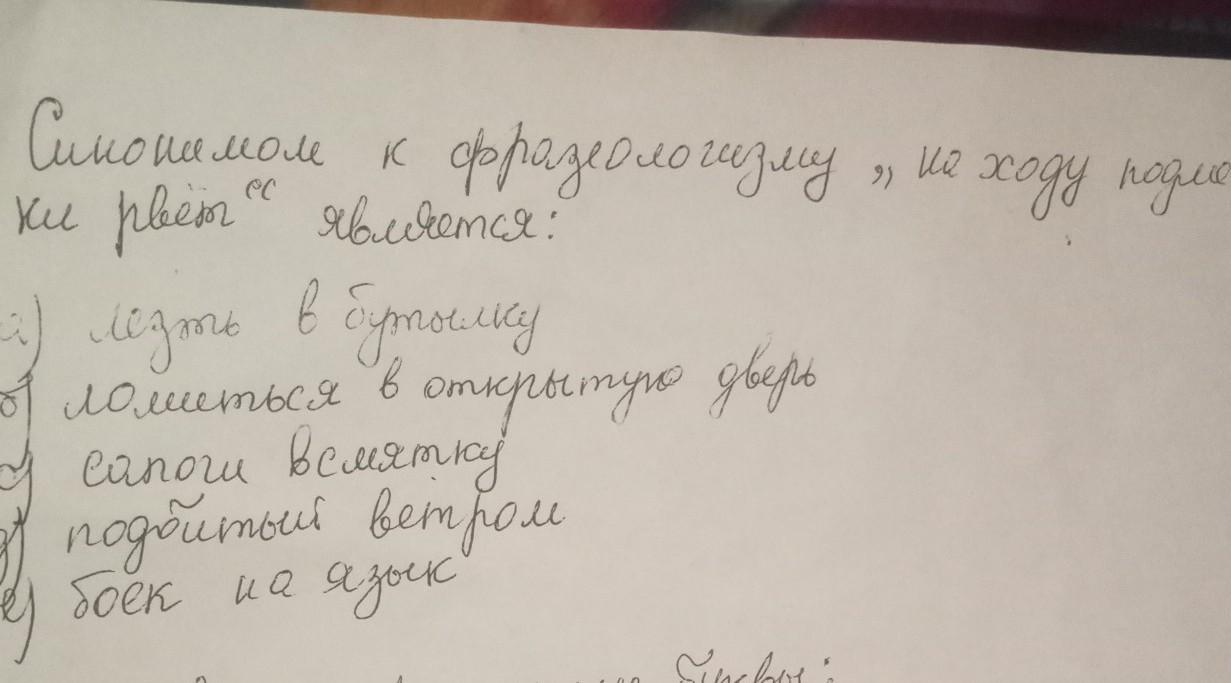 Синонимом к фразеологизму „на ходу подмё
ки рвёт“ является:
а) лезть в бутылку
б) ломиться в открытую дверь
с) сапоги всмятку
д) подбитый ветром
е) боек на язык
буквы: